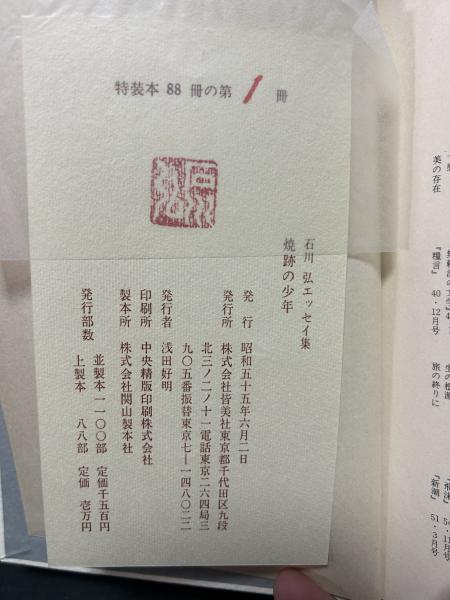 特装本 88 冊の第 1 冊
石川 弘エッセイ集
焼跡の少年
発行 昭和五十五年六月二日
発行所 株式会社皆美社東京都千代田区九段
北三ノ二ノ十一電話東京二六四局三
九〇五番振替東京七―一四八〇二二
発行者 浅田好明
印刷所 中央精版印刷株式会社
製本所 株式会社関山製本社
発行部数 並製本一一〇〇部 定価千五百円
上製本 八八部 定価 壱万円
美の存在
『糧言』 40・12月号
旅の終りに
『新潮』 51・3月号